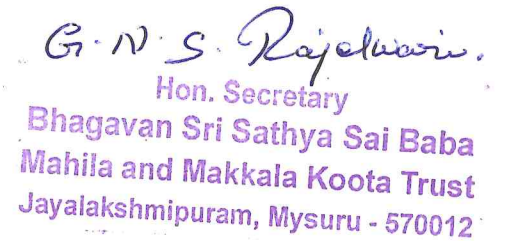 G. N. S. Rajalwari.
Hon. Secretary
Bhagavan Sri Sathya Sai Baba
Mahila and Makkala Koota Trust
Jayalakshmipuram, Mysuru - 570012